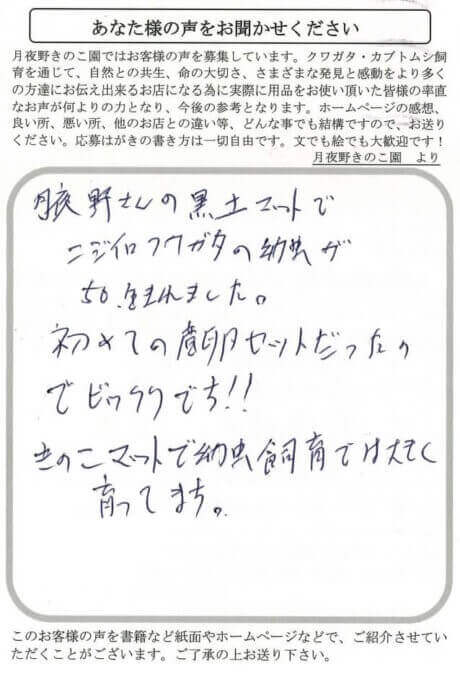 あなた様の声をお聞かせください
月夜野きのこ園ではお客様の声を募集しています。クワガタ・カブトムシ飼
育を通じて、自然との共生、命の大切さ、さまざまな発見と感動をより多く
の方達にお伝え出来るお店になる為に実際に用品をお使い頂いた皆様の率直
なお声が何よりの力となり、今後の参考となります。ホームページの感想、
良い所、悪い所、他のお店との違い等、どんな事でも結構ですので、お送り
ください。応募はがきの書き方は一切自由です。文でも絵でも大歓迎です!
月夜野きのこ園 より
月夜野さんの黒土マットで
ニジイロクワガタの幼虫が
50生まれました。
初めての産卵セットだったの
でビックリです!!
きのこマットで幼虫飼育では大きく
育ってます。
このお客様の声を書籍など紙面やホームページなどで、ご紹介させてい
ただくことがございます。ご了承の上お送り下さい。